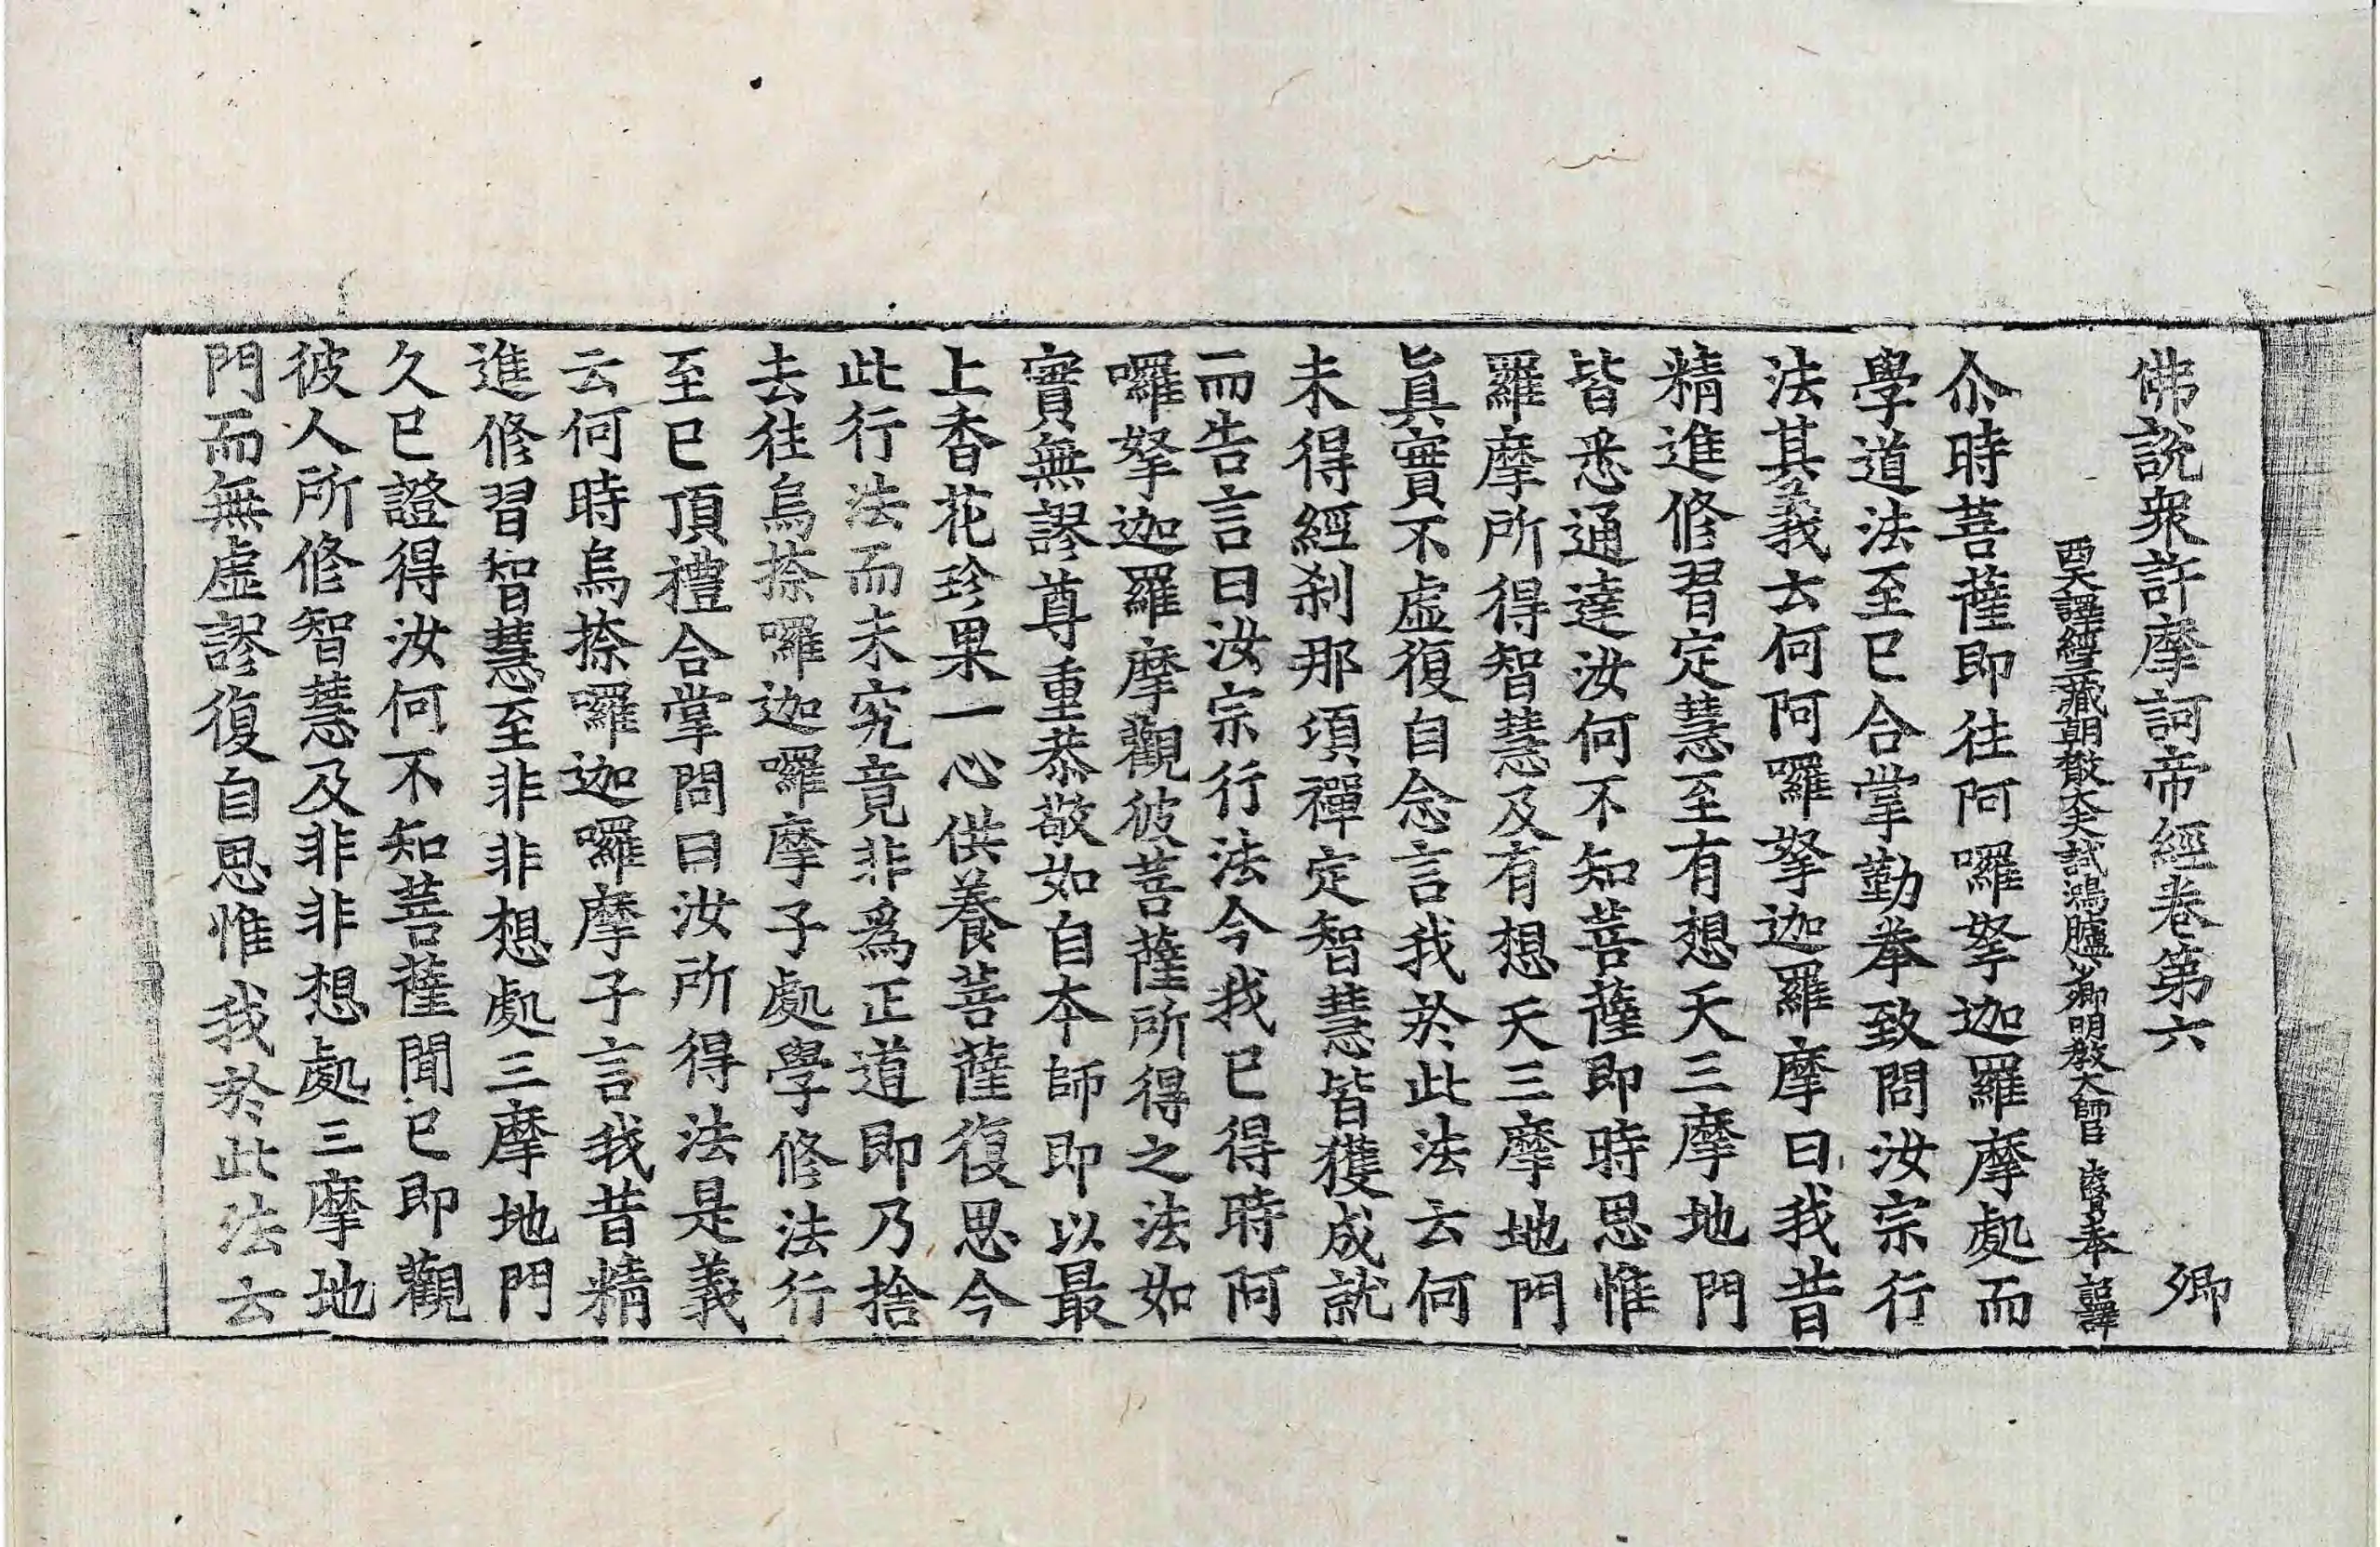 佛說衆許摩訶帝經卷第六 卿
西天譯經三藏朝散大夫試鴻臚少卿明教大師臣法賢奉 詔譯
尒時菩薩即往阿囉拏迦羅摩處而
學道法至已合掌勤拳致問汝宗行
法其義云何阿囉拏迦羅摩曰我昔
精進修習定慧至有想天三摩地門
皆悉通達汝何不知菩薩即時思惟
羅摩所得智慧及有想天三摩地門
眞實不虛復自念言我於此法云何
未得經刹那項禪定智慧皆獲成就
而告言曰汝宗行法今我已得時阿
囉拏迦羅摩觀彼菩薩所得之法如
實無謬尊重恭敬如自本師即以最
上香花珍果一心供養菩薩復思今
此行法而未究竟非爲正道即乃捨
去往烏捺囉迦囉摩子處學修法行
至已頂禮合掌問曰汝所得法是義
云何時烏捺囉迦囉摩子言我昔精
進修習智慧至非非想處三摩地門
久已證得汝何不知菩薩聞已即觀
彼人所修智慧及非非想處三摩地
門而無虛謬復自思惟我於此法云